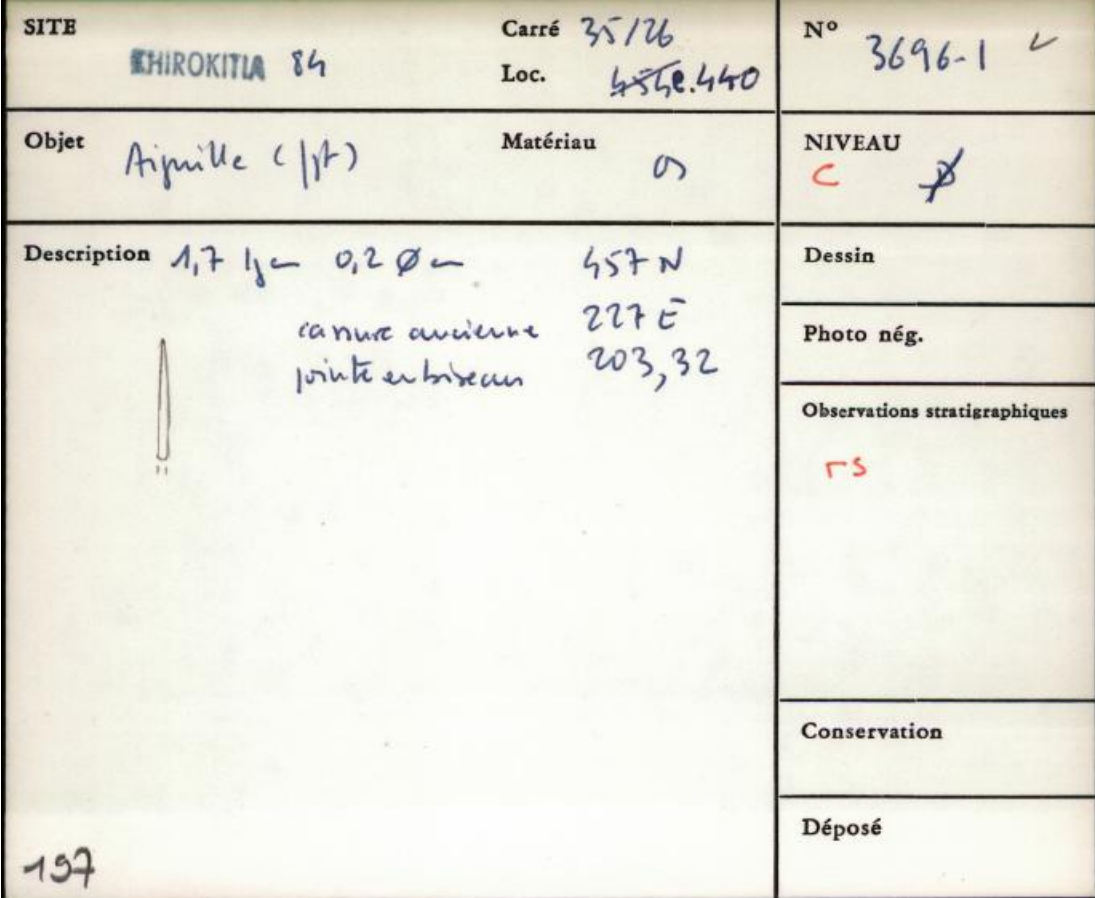 SITE
KHIROKITIA 84
Carré 35/26
Loc. 454e.440
N° 3696-1
Objet Aiguille (fgt)
Matériau os
NIVEAU
C D
Description 1,7 lg cm 0,2 Ø cm 457 N
cassure ancienne 227 E
pointe en biseau 203,32
Dessin
Photo nég.
Observations stratigraphiques
rs
Conservation
Déposé
197